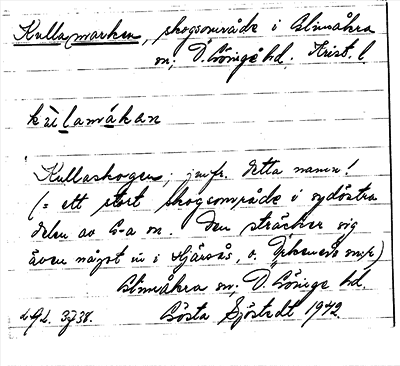 Kullamarken, skogsområde i Glimåkra
sn, Ö. Göinge hd. Krist. l
kùlamákan
Kullaskogen; jmfr. detta namn!
(= ett stort skogsområde i sydöstra
delen av G-a sn. Den sträcker sig
även något in i Hjärsås, o. Örkeneds snr)
Glimåkra sn, Ö. Göinge hd.
Gösta Sjöstedt 1942.